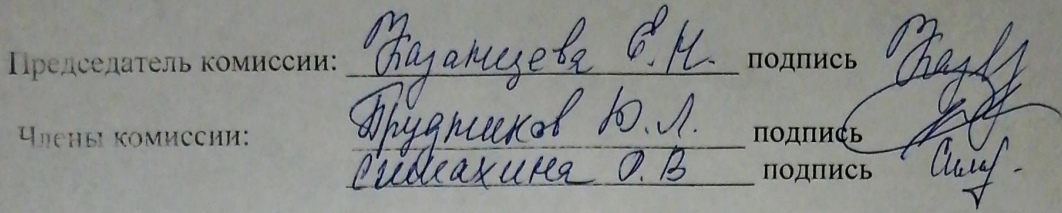 Председатель комиссии: Казанцева Е.Н. подпись
Члены комиссии: Прудников Ю.Л. подпись
Симахина О.В подпись